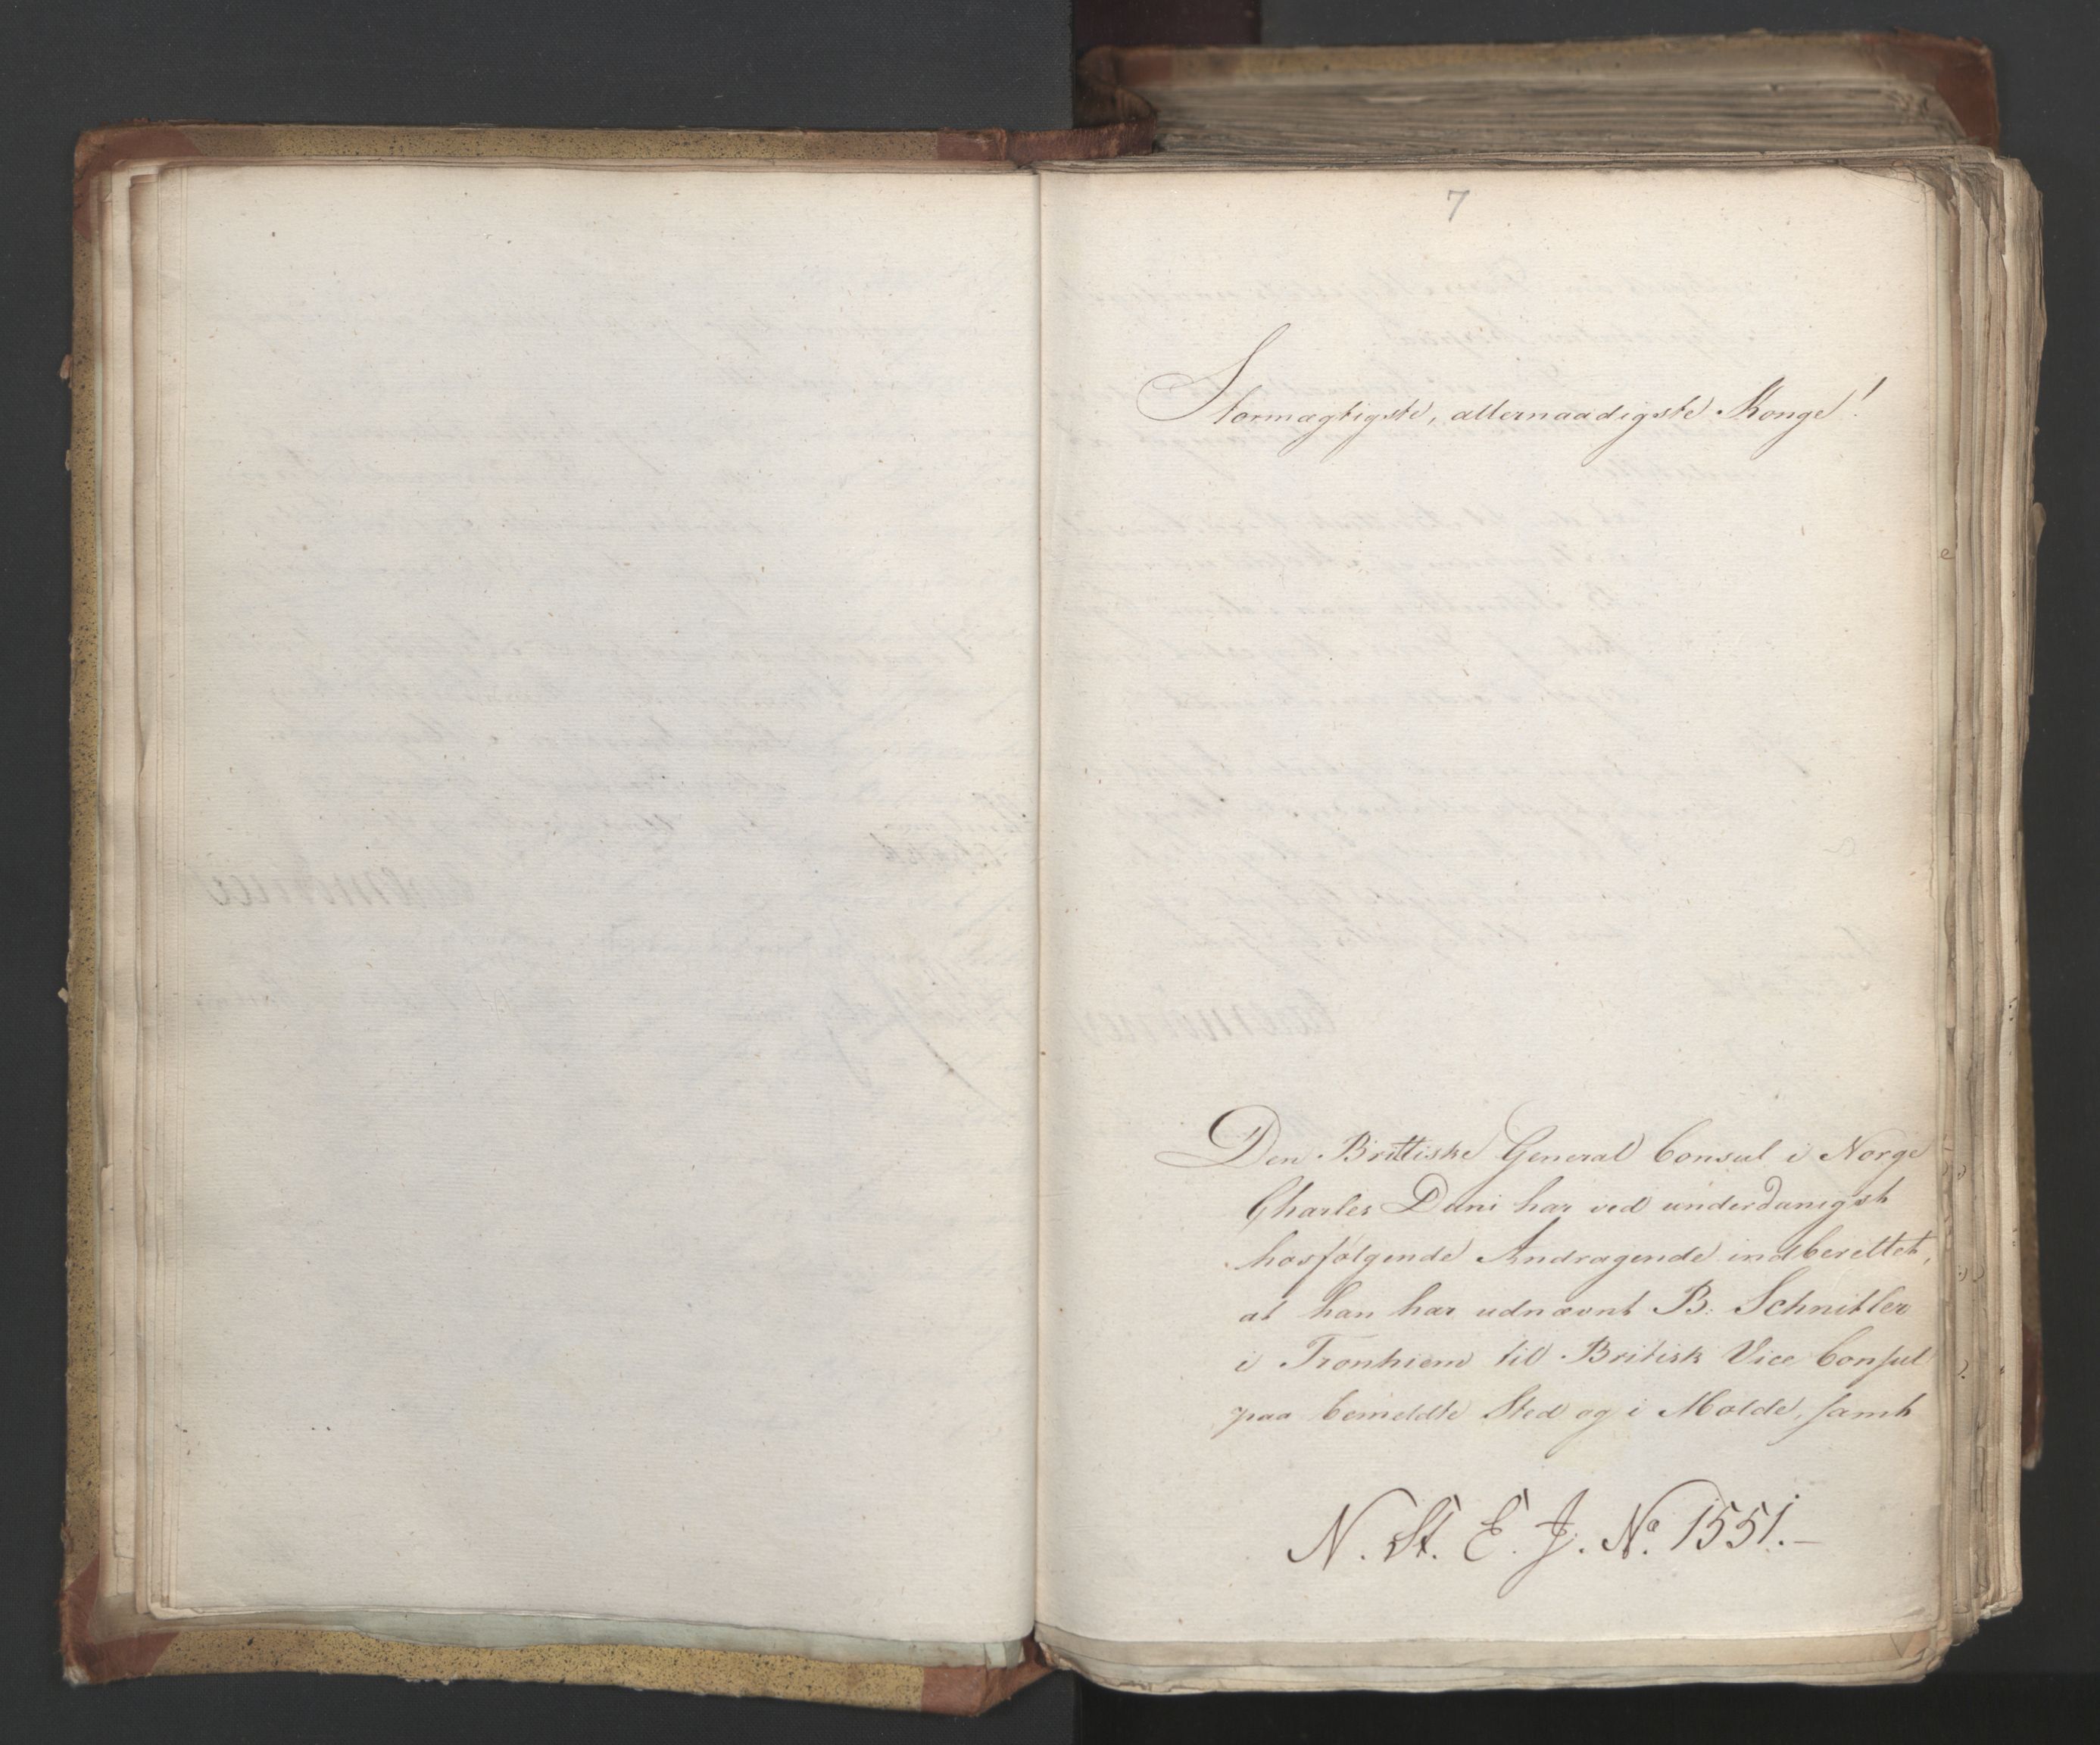 7
Stormægtigste, allernaadigste Konge!
Den Brittiske General Consul i Norge
Charles Duni har ved underdanigst
hosfølgende Andragende indberettet,
at han har udnævnt B. Schnitler
i Tronhiem til Britisk Vice Consul
paa bemeldte Sted og i Molde, samt
N. St. E. J. No. 1551.-